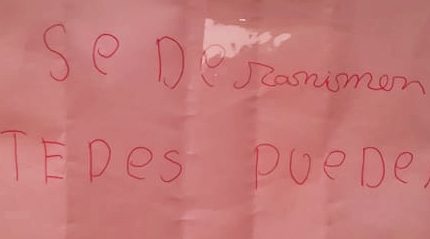 Se De ranismen
TEDes PUeDe,